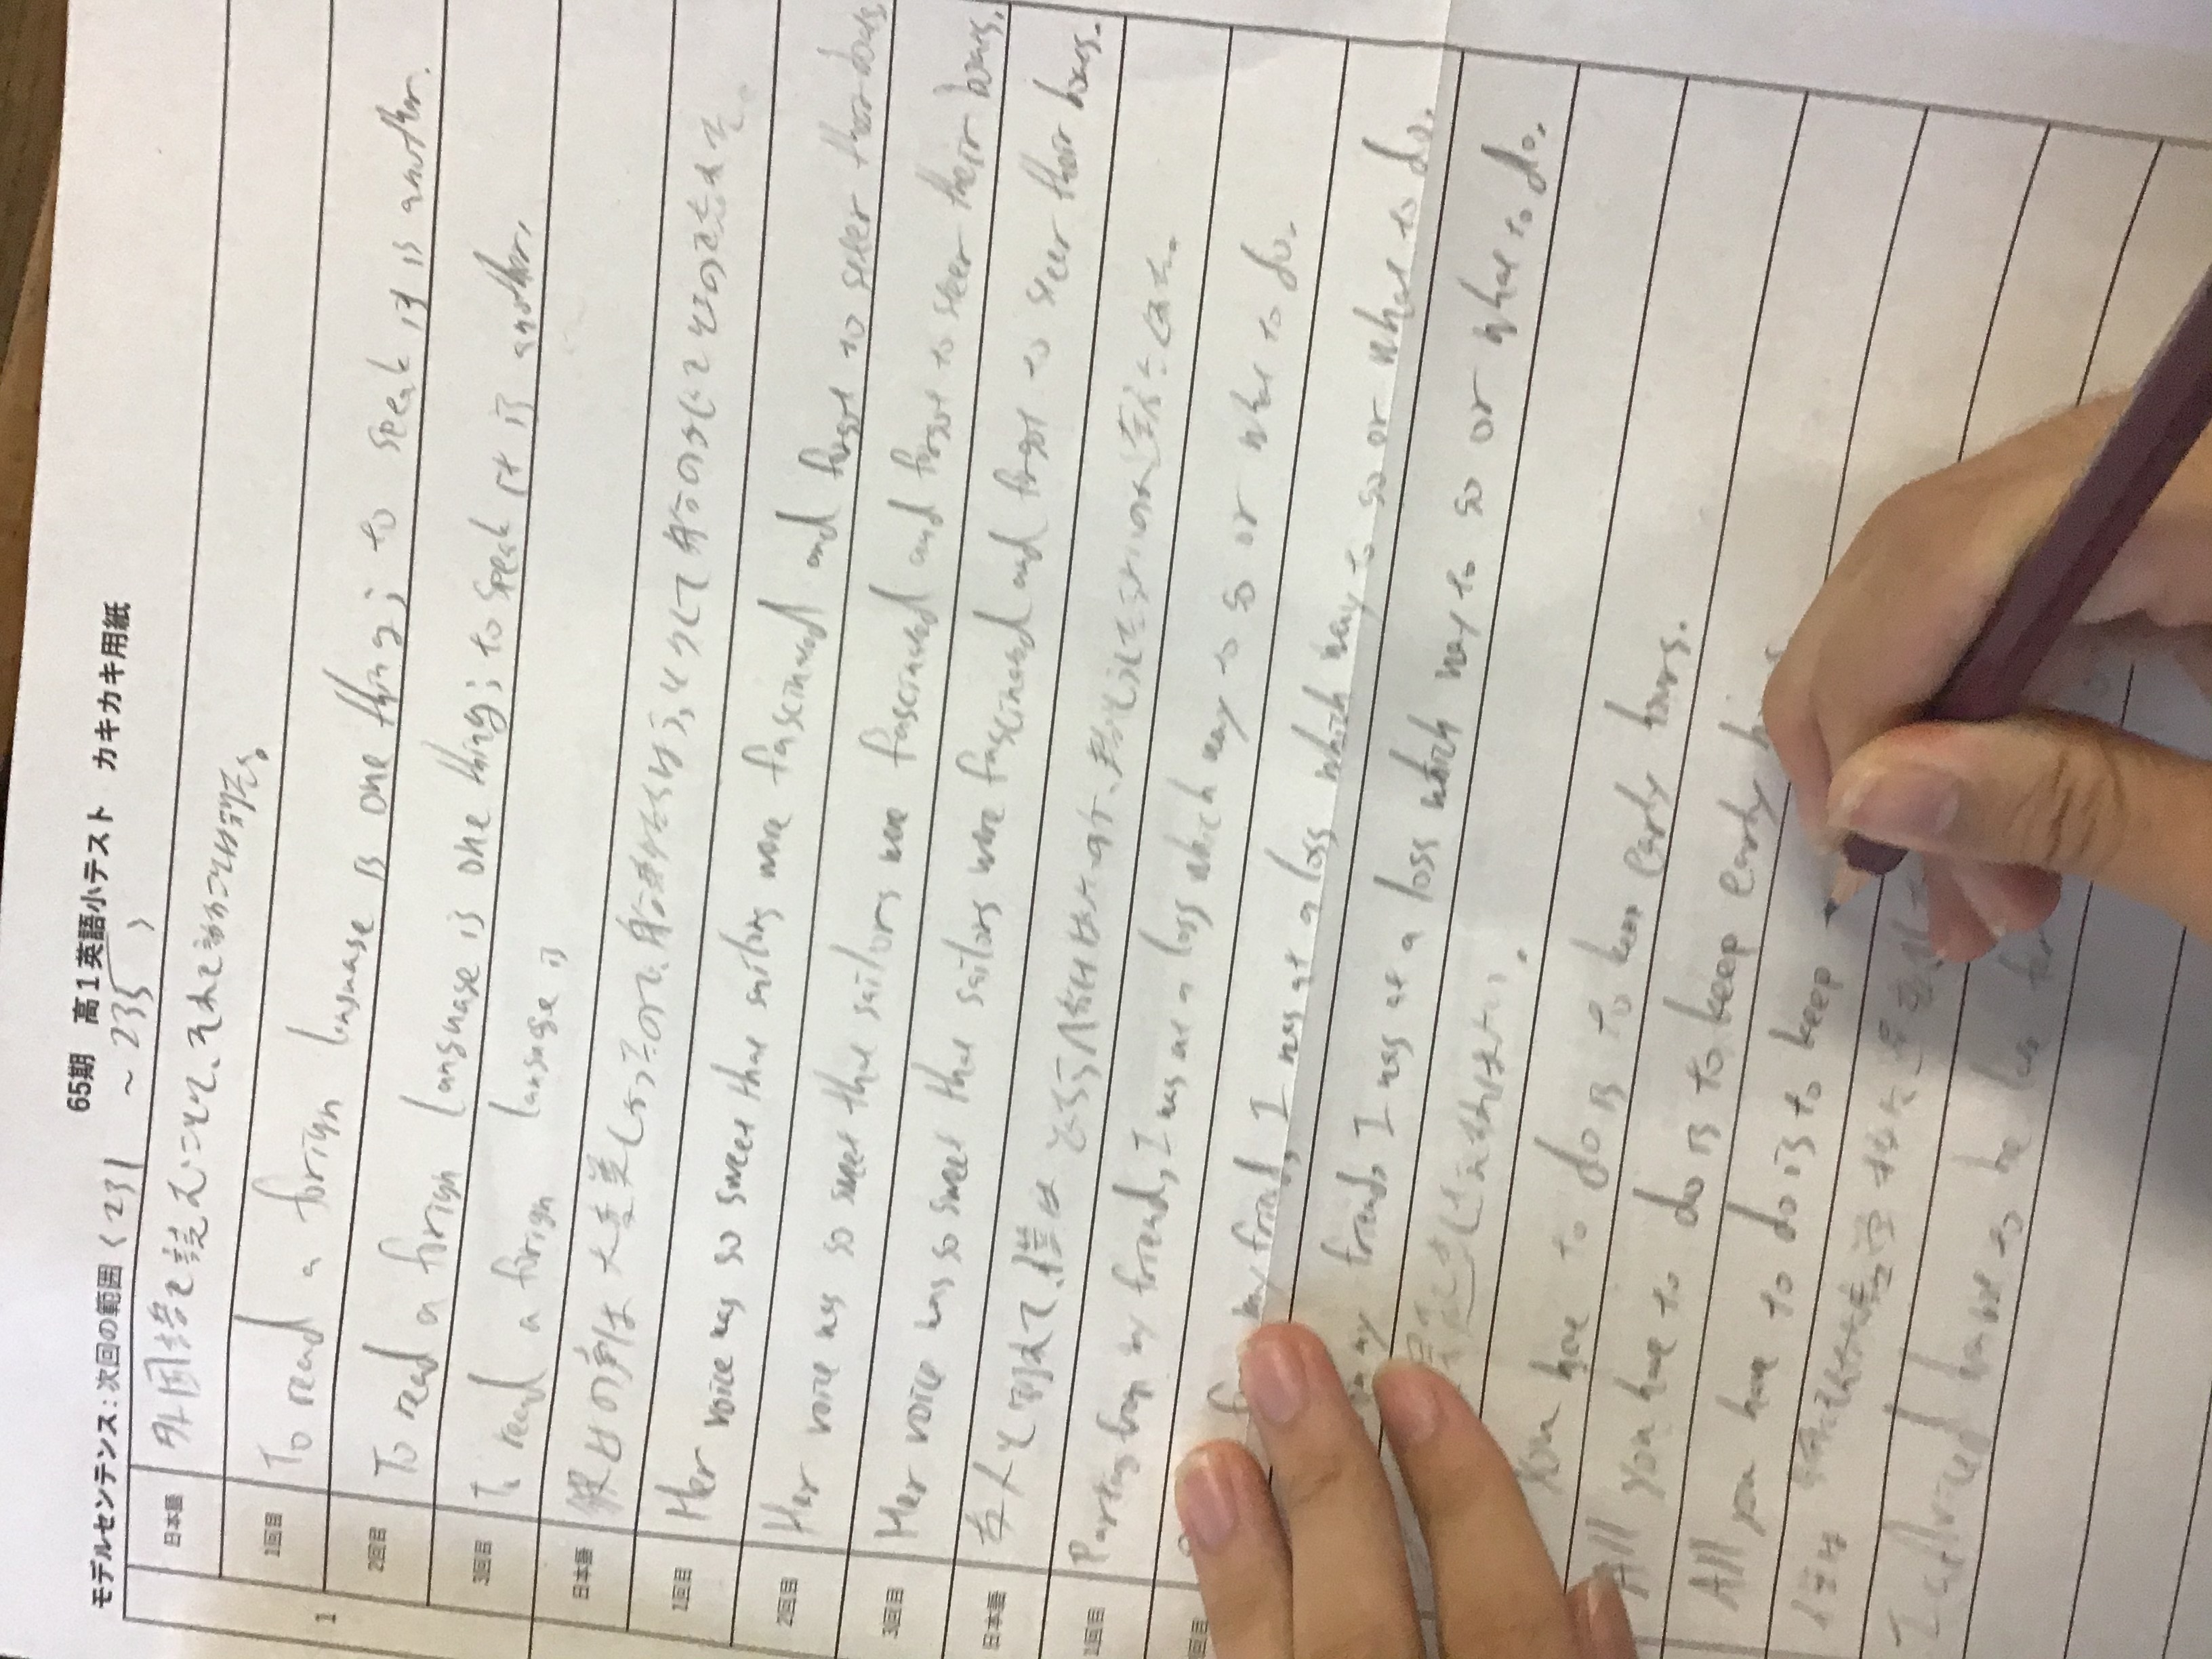 65期 高1英語小テスト カキカキ用紙
モデルセンテンス:次回の範囲(231 ~ 235 )
1
日本語 外国語を読むことと、それを話すことは別だ。
1回目 To read a forign language is one thing; to speak it is another.
2回目 To read a forign language is one thing; to speak it is another.
3回目 To read a forign language is
日本語 彼女の声は大変美しかったので、船乗たちはうっとりして船のかじをとるのを忘れた。
1回目 Her voice was so sweet that sailors were fascinated and forgot to steer their boats.
2回目 Her voice was so sweet that sailors were fascinated and forgot to steer their boats.
3回目 Her voice was so sweet that sailors were fascinated and forgot to steer their boats.
日本語 友人と別れて、僕は
1回目 Parting from my friends, I was at a loss which way to go or what to do.
my friends, I was at a loss which way to go or what to do.
my friends, I was at a loss which way to go or what to do.
You have to do is to keep early hours.
All you have to do is to keep early
All you have to do is to keep
I